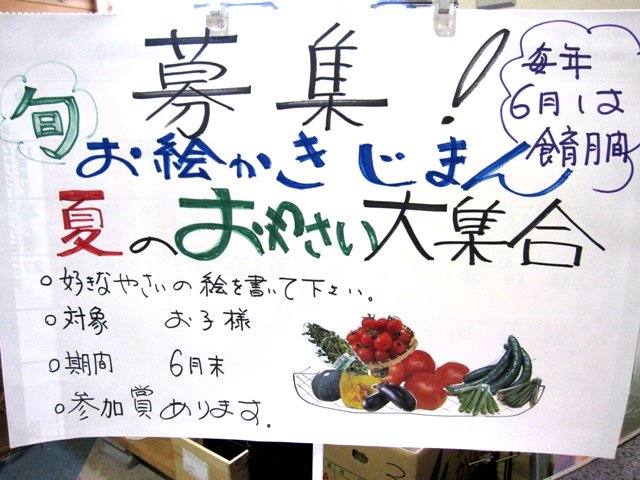 募集!
旬
毎年
6月は
食育月間
お絵かきじまん
夏のおやさい大集合
○好きなやさいの絵を書いて下さい。
○対象 お子様
○期間 6月末
○参加賞あります。